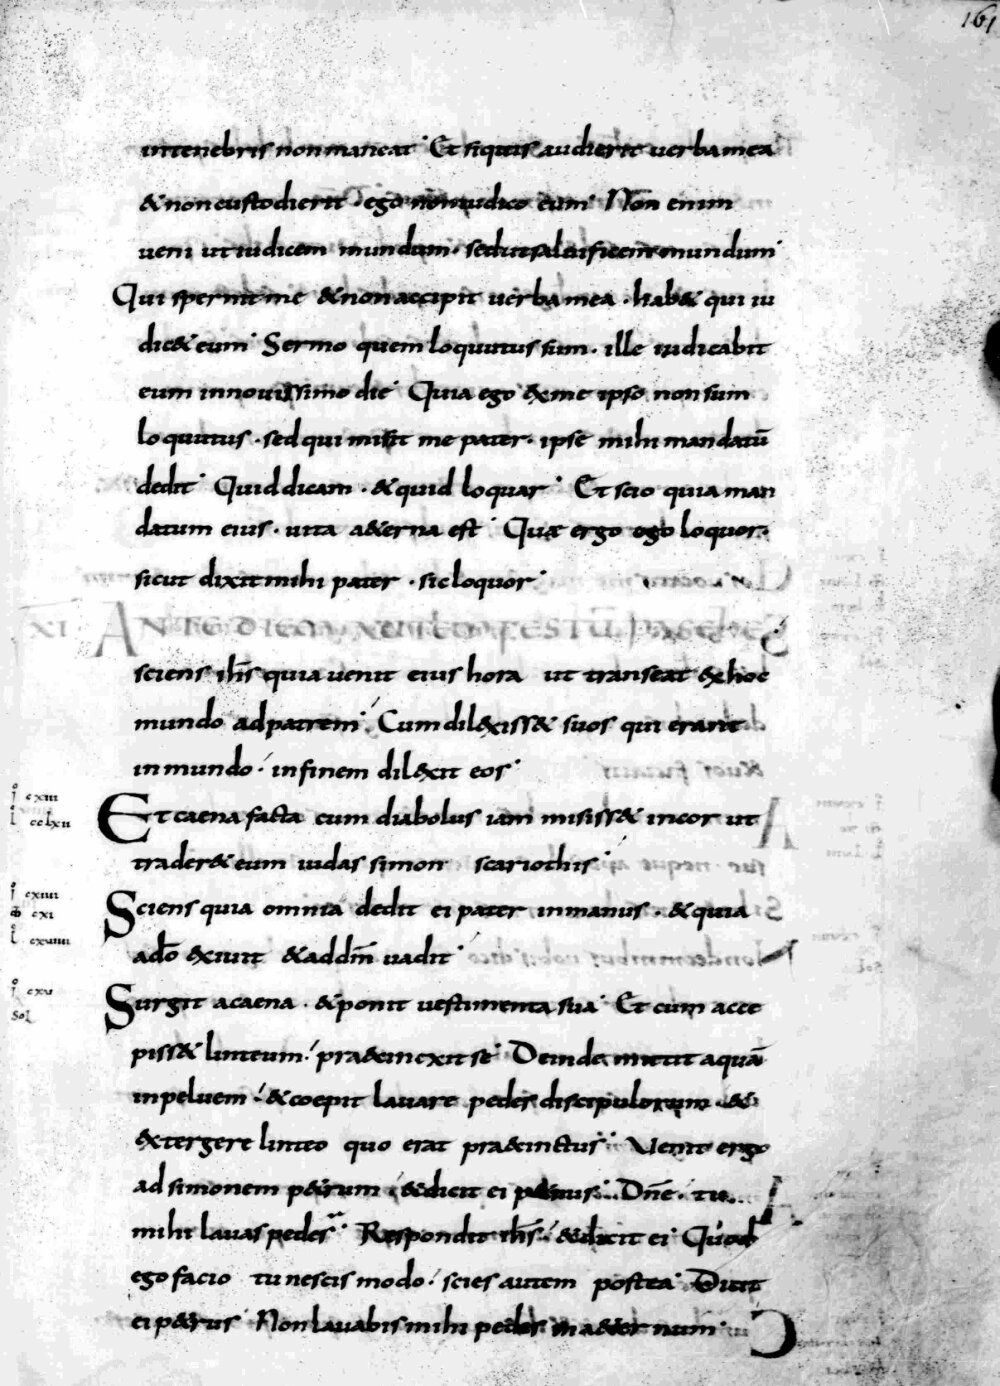 161
intenebris non maneat Et siquis audierit uerba mea
& non custodierit · ego non iudico eum Non enim
ueni ut iudicem mundum · sed ut saluificem mundum
Qui spernit me & non accipit uerba mea · hab& qui iu
dic& eum Sermo quem loquutus sum · ille iudicabit
eum innouissimo die Quia ego exme ipso non sum
loquutus · sed qui misit me pater · ipse mihi mandatū
dedit Quid dicam · & quid loquar Et scio quia man
datum eius · uita a&erna est Quæ ergo ego loquor ·
sicut dixit mihi pater · sic loquor
XI ANTE DIEM FESTŪ PASCHE
sciens ihs̄ quia uenit eius hora ut transeat exhoc
mundo ad patrem Cum dilexiss& suos qui erant
in mundo · infinem dilexit eos
cxiii
cclxii
Et caena facta cum diabolus iam misiss& incor ut
trader& eum iudas simon scariothis
cxiiii
cxi
cxuiii
Sciens quia omnia dedit ei pater inmanus · & quia
ad̄o exiuit & addn̄m uadit
cxu
Sol
Surgit acaena · & ponit uestimenta sua Et cum acce
piss& linteum · pra&cinxit se Deinde mittit aquā
inpeluem · & coepit lauare pedes discipulorum · &
extergere linteo quo erat pra&cinctus Uenit ergo
ad simonem p&rum & dicit ei p&rus Dn̄e · tu
mihi lauas pedes Respondit ihs̄ · & dicit ei Quod
ego facio tu nescis modo · scies autem postea Dicit
ei p&rus Non lauabis mihi pedes in a&ernum